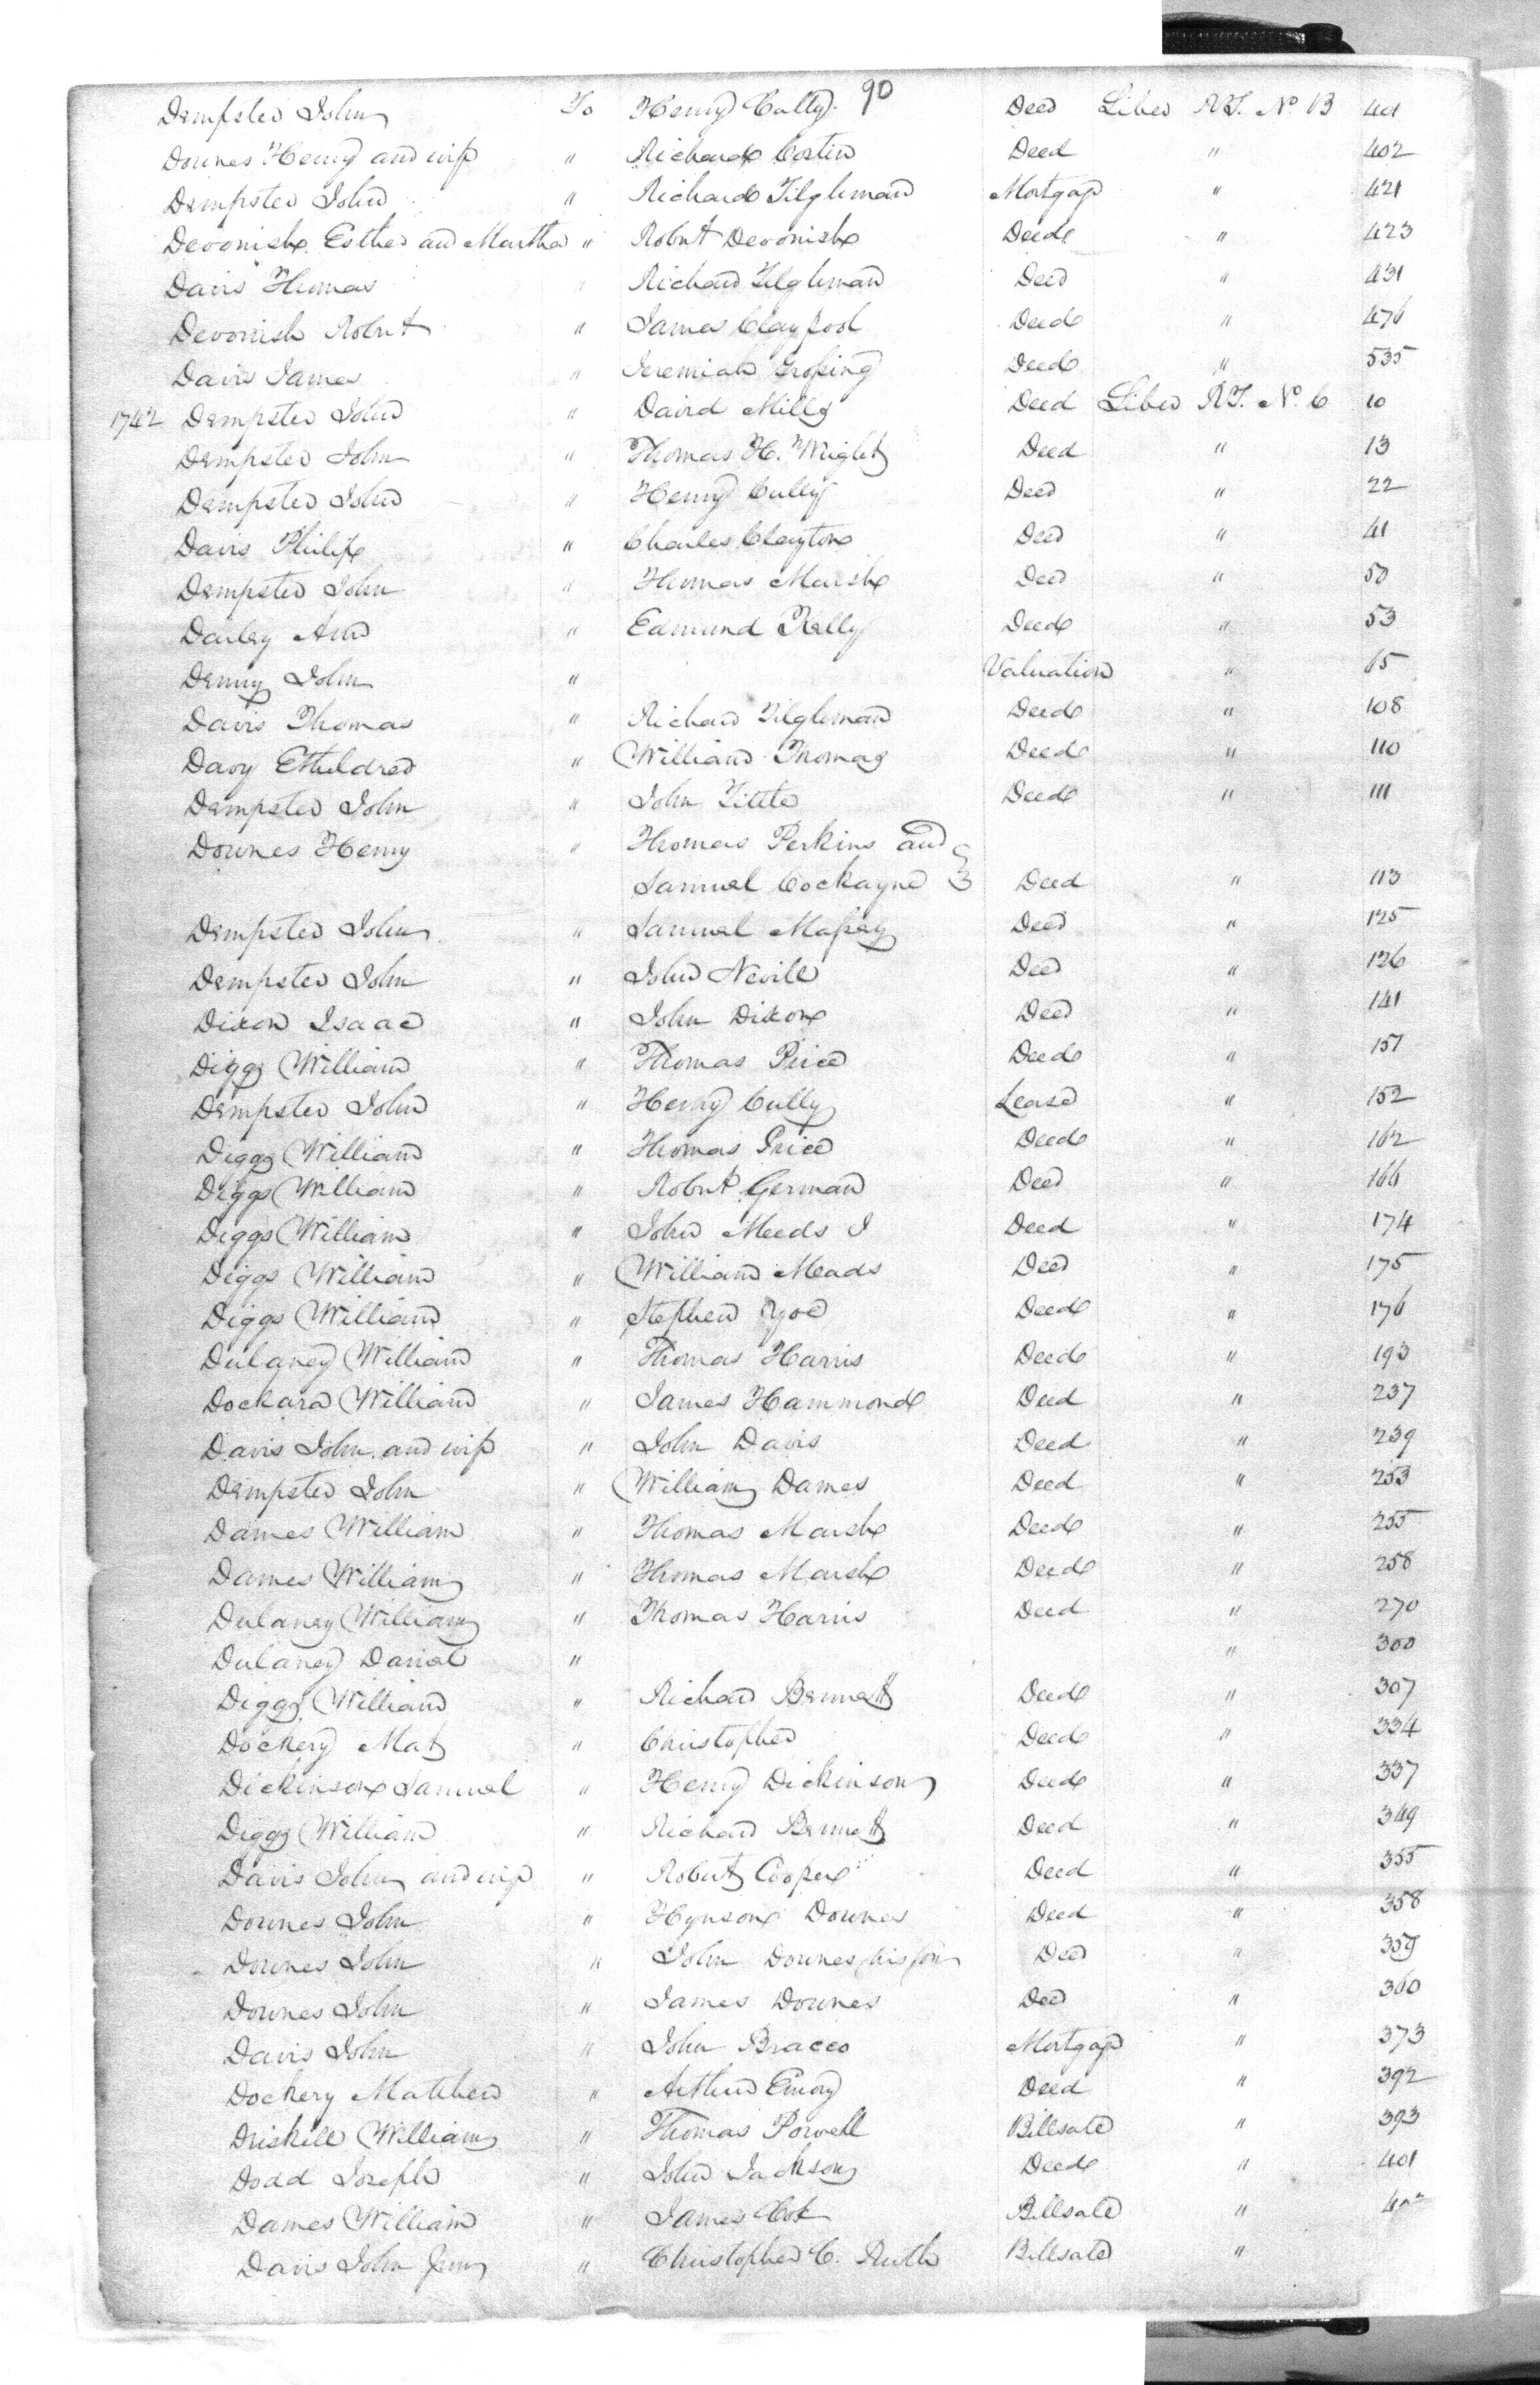 90
Dempster John To Henry Cully Deed Liber RT. No. B 401
Downes Henry and wife " Richard Costin Deed " 402
Dempster John " Richard Tilghman Mortgage " 421
Devonish Esther and Martha " Robert Devonish Deed " 423
Davis Thomas " Richard Tilghman Deed " 431
Devonish Robert " James Claypool Deed " 476
Davis James " Jeremiah Deed " 535
1742 Dempster John " David Mills Deed Liber RT. No. C 10
Dempster John " Thomas H. Wright Deed " 13
Dempster John " Henry Cully Deed " 22
Davis Philip " Charles Clayton Deed " 41
Dempster John " Thomas Marsh Deed " 50
Dailey Ann " Edmund Kelly Deed " 53
Denny John " Valuation " 65
Davis Thomas " Richard Tilghman Deed " 108
Davy Etheldred " William Thomas Deed " 110
Dempster John " John Tittle Deed " 111
Downes Henry " Thomas Perkins and
Samuel Cockayne } Deed " 113
Dempster John " Samuel Massey Deed " 125
Dempster John " John Nevill Deed " 126
Dixon Isaac " John Dixon Deed " 141
Diggs William " Thomas Price Deed " 151
Dempster John " Henry Cully Lease " 152
Diggs William " Thomas Price Deed " 162
Diggs William " Robert German Deed " 166
Diggs William " John Meeds J Deed " 174
Diggs William " William Meads Deed " 175
Diggs William " Stephen Yoe Deed " 176
Dulaney William " Thomas Harris Deed " 193
Dockara William " James Hammond Deed " 237
Davis John and wife " John Davis Deed " 239
Dempster John " William Dames Deed " 253
Dames William " Thomas Marsh Deed " 255
Dames William " Thomas Marsh Deed " 258
Dulaney William " Thomas Harris Deed " 270
Dulaney Daniel " " 300
Diggs William " Richard Bennett Deed " 307
Dockery Mat " Christopher Deed " 334
Dickinson Samuel " Henry Dickinson Deed " 337
Diggs William " Richard Bennett Deed " 349
Davis John and wife " Robert Cooper Deed " 355
Downes John " Hynson Downes Deed " 358
Downes John " John Downes his son Deed " 359
Downes John " James Downes Deed " 360
Davis John " John Bracco Mortgage " 373
Dockery Matthew " Arthur Emory Deed " 392
Driskill William " Thomas Powell Billsale " 393
Dodd Joseph " John Jackson Deed " 401
Dames William " James Billsale "
Davis John Junr " Christopher C. Ruth Billsale "